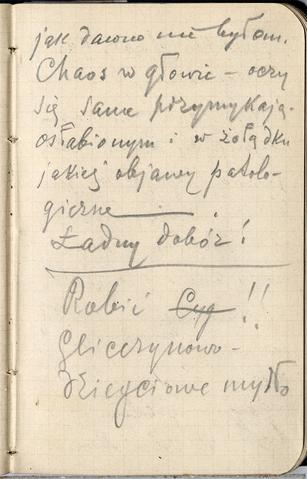 jak dawno nie byłem.
Chaos w głowie – oczy
się same przymykają.
osłabionym i w żołądku
jakieś objawy patolo-
giczne
Ładny dobór!
Robić Cyg!!
Glicerynowo-
dziegciowe mydło